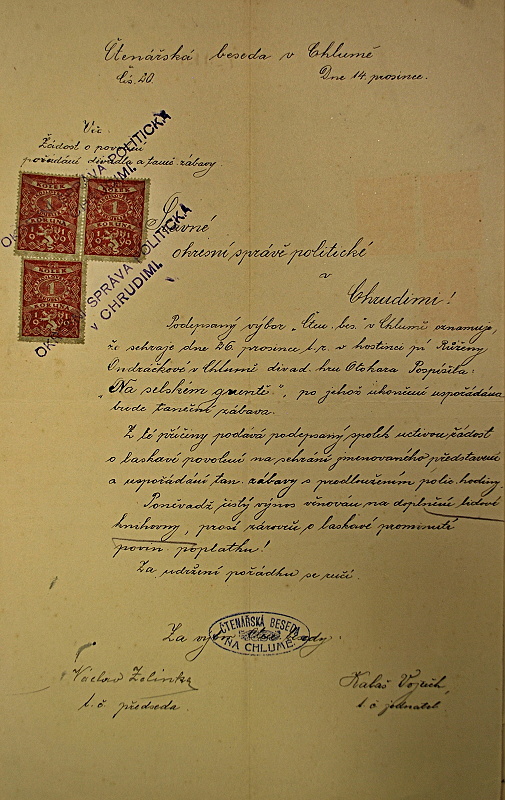 Čtenářská beseda v Chlumě
Čís. 20. Dne 14. prosince.
Věc:
Žádost o povolení
pořádání divadla a tan. zábavy.
OKRESNÍ SPRÁVA POLITICKÁ
v CHRUDIMI.
KOLEK
1
KORUNA
KOLEK
1
KORUNA
KOLEK
1
KORUNA
OKRESNÍ SPRÁVA POLITICKÁ
v CHRUDIMI.
Slavné
okresní správě politické
v
Chrudimi!
Podepsaný výbor „Čten. bes." v Chlumě oznamuje,
že sehraje dne 26. prosince t. r. v hostinci pí Růženy
Ondráčkové v Chlumě divad. hru Otohara Pospíšila:
„Na selském gruntě", po jehož ukončení uspořádána
bude taneční zábava.
Z té příčiny podává podepsaný spolek uctivou žádost
o laskavé povolení na sehrání jmenovaného představení
a uspořádání tan. zábavy s prodloužením polic. hodiny.
Poněvadž čistý výnos věnován na doplnění lidové
knihovny, prosí zároveň o laskavé prominutí
povin. poplatku!
Za udržení pořádku se ručí.
Za výbor Čten. besedy:
ČTENÁŘSKÁ BESEDA
NA CHLUMĚ
Václav Zelinka
t. č. předseda.
Kalaš Vojtěch,
t. č. jednatel.